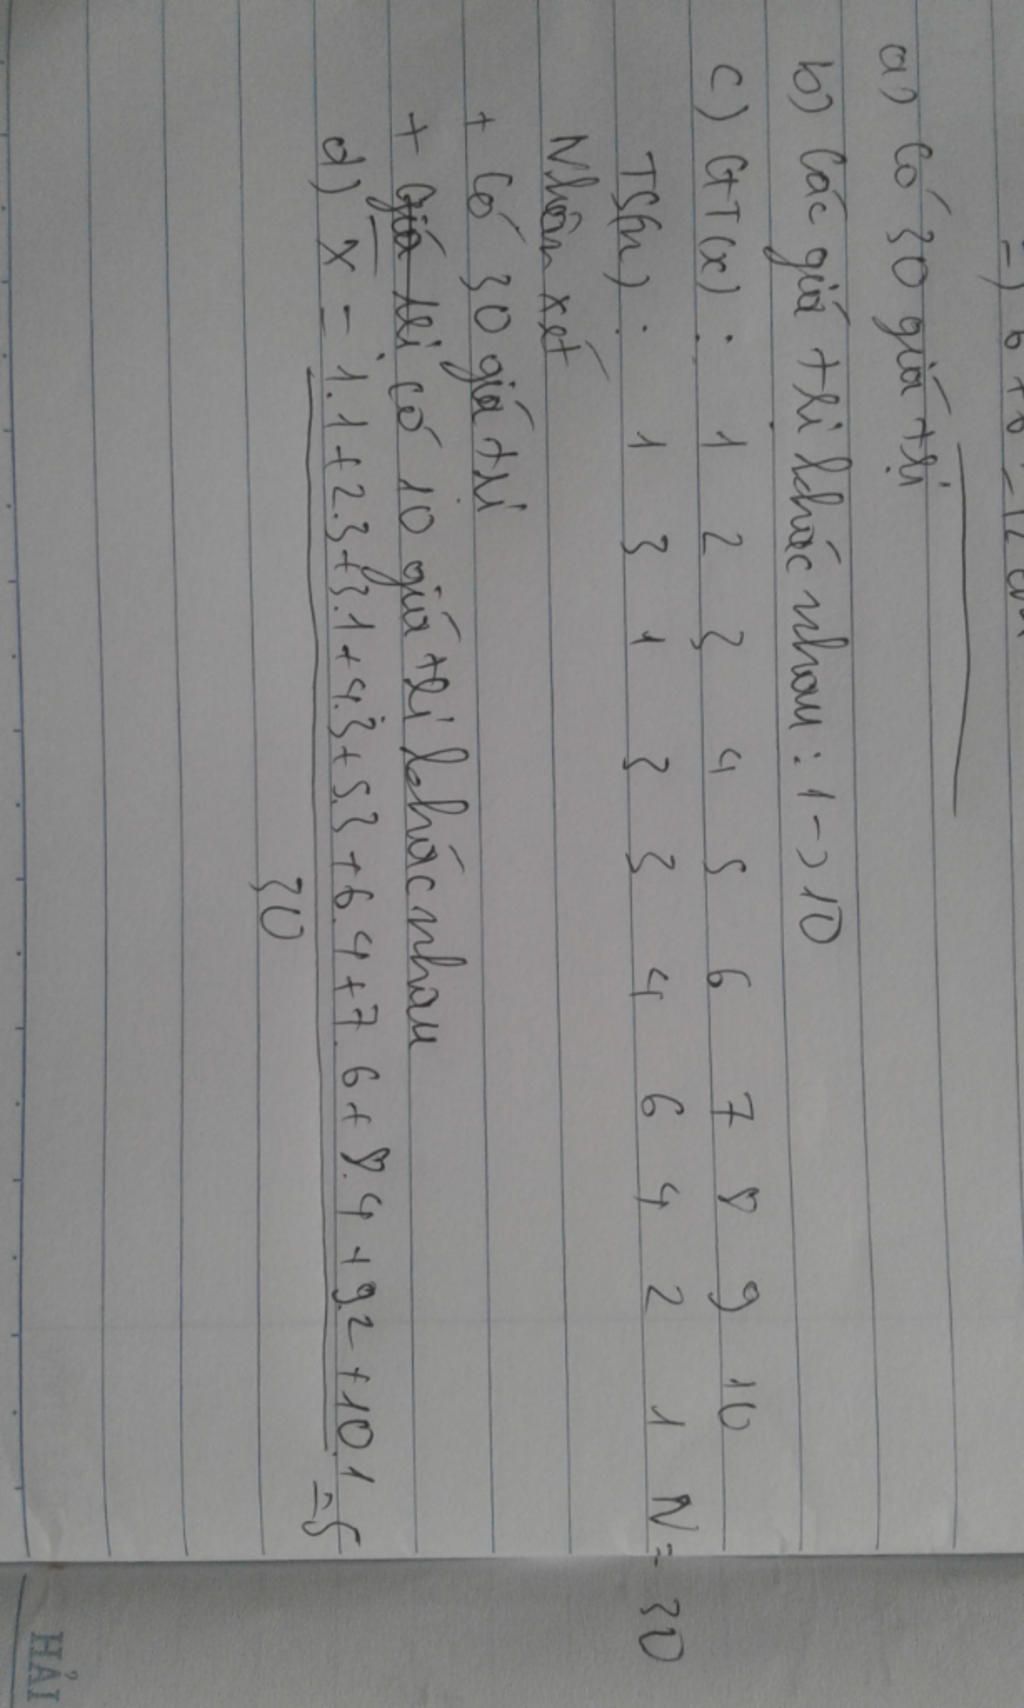 a) Có 30 giá trị
b) Các giá trị khác nhau : 1 -> 10
c) GT(x) : 1 2 3 4 5 6 7 8 9 10
TS(n) : 1 3 1 3 3 4 6 4 2 1 N = 30
Nhận xét
+ Có 30 giá trị
+ giá trị có 10 giá trị khác nhau
d) X = 1.1+2.3+3.1+4.3+5.3+6.4+7.6+8.4+9.2+10.1 = 5
30
HẢI